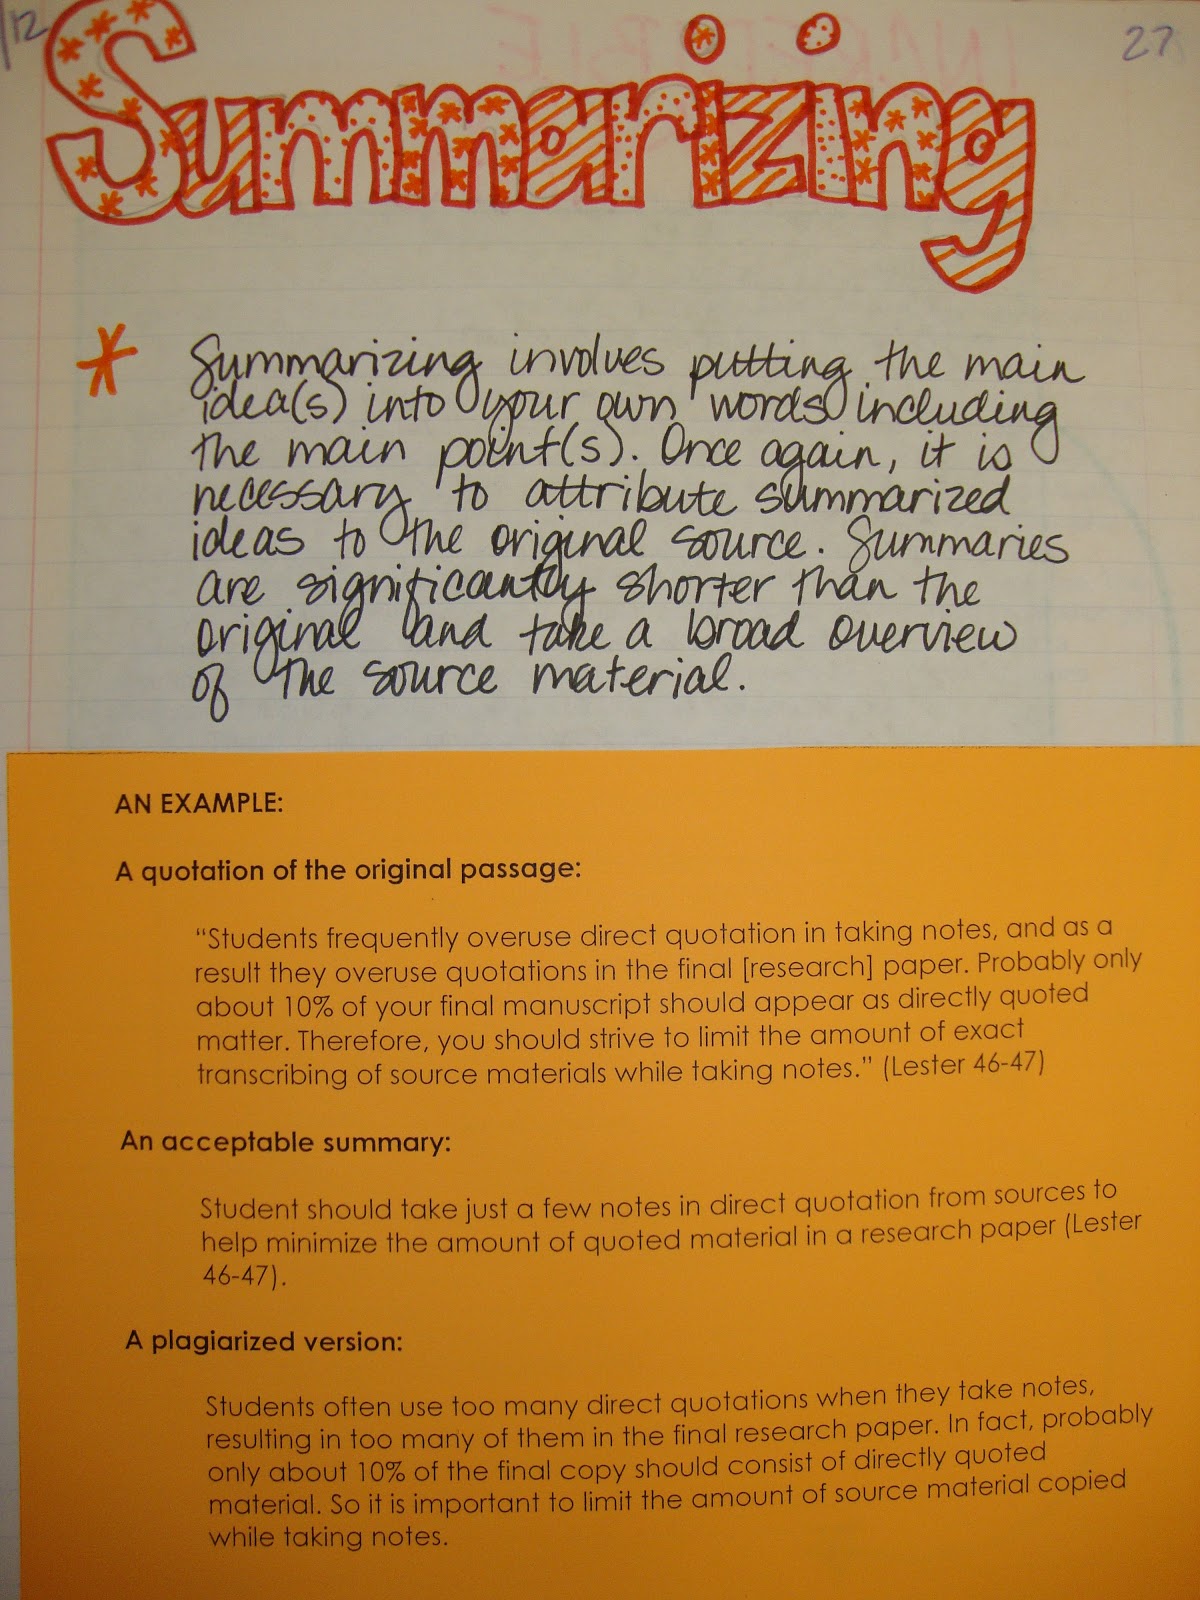 /12
27
Summarizing
* Summarizing involves putting the main
idea(s) into your own words including
the main point(s). Once again, it is
necessary to attribute summarized
ideas to the original source. Summaries
are significantly shorter than the
original and take a broad overview
of the source material.
AN EXAMPLE:
A quotation of the original passage:
“Students frequently overuse direct quotation in taking notes, and as a
result they overuse quotations in the final [research] paper. Probably only
about 10% of your final manuscript should appear as directly quoted
matter. Therefore, you should strive to limit the amount of exact
transcribing of source materials while taking notes.” (Lester 46-47)
An acceptable summary:
Student should take just a few notes in direct quotation from sources to
help minimize the amount of quoted material in a research paper (Lester
46-47).
A plagiarized version:
Students often use too many direct quotations when they take notes,
resulting in too many of them in the final research paper. In fact, probably
only about 10% of the final copy should consist of directly quoted
material. So it is important to limit the amount of source material copied
while taking notes.